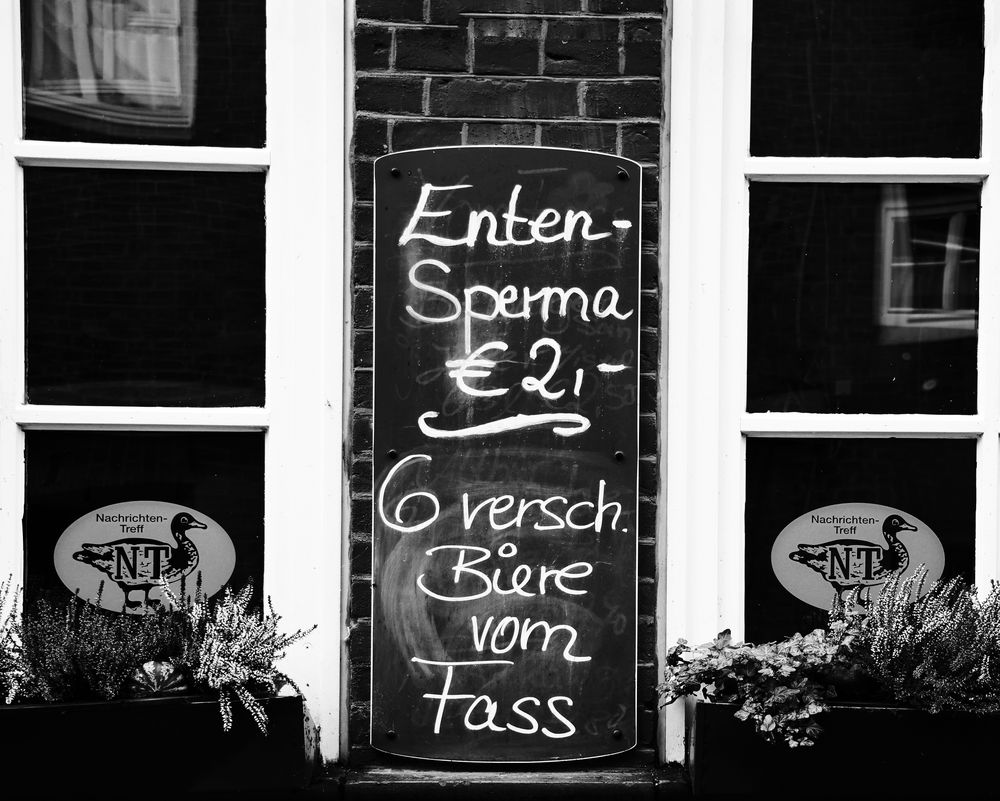 Enten-
Sperma
€ 2,-
6 versch.
Biere
vom
Fass
Nachrichten-
Treff
NT
Nachrichten-
Treff
NT